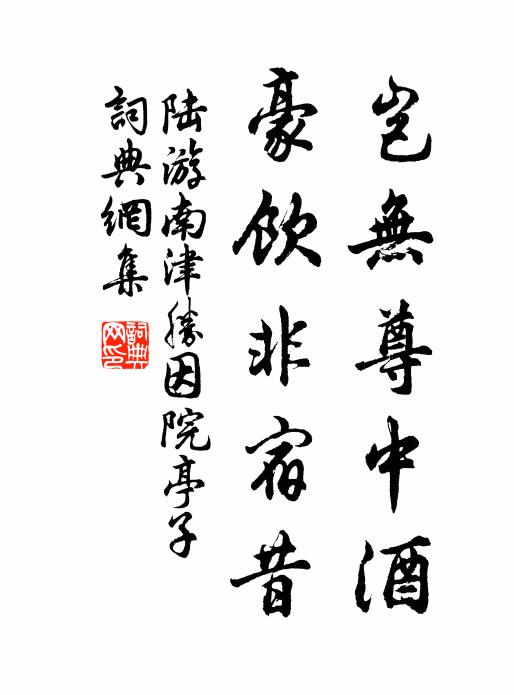 豈無尊中酒
豪飲非宿昔
陆游南津勝因院亭子
詞典網集
詞典
网印